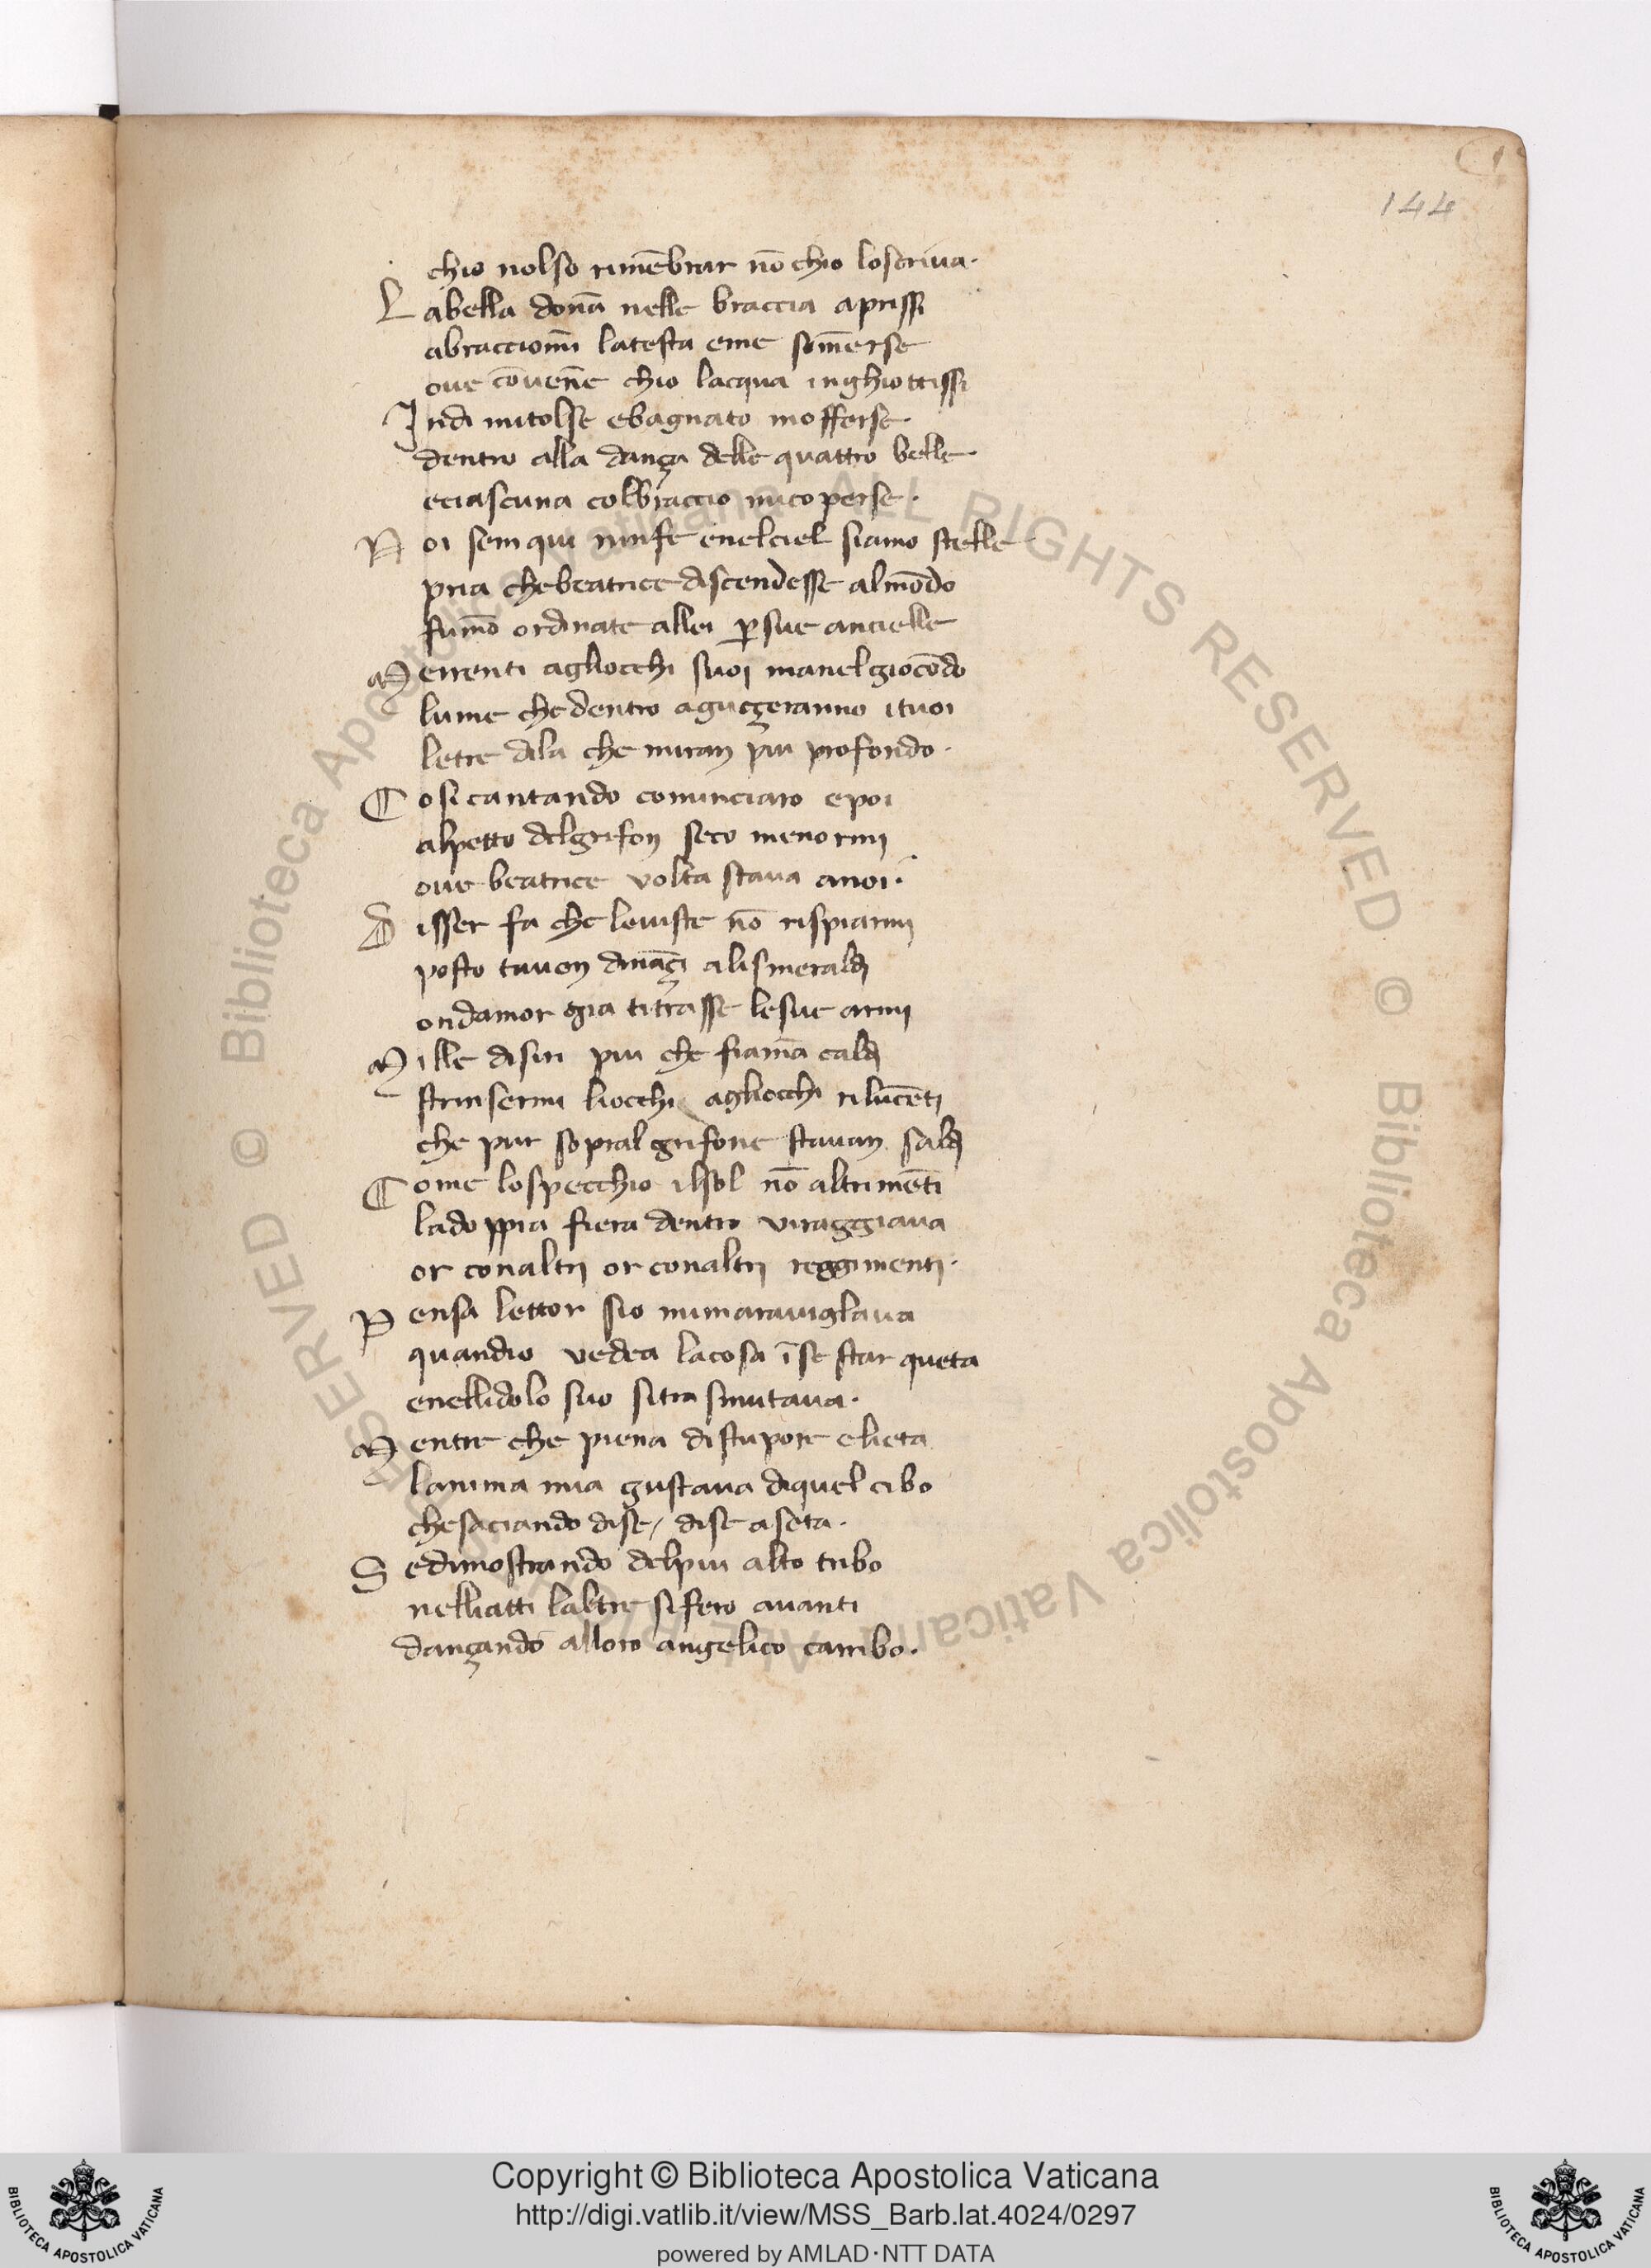 144
chio nolso rimēbrar nō chio loscriua.
Labella donā nelle braccia aprissi
abracciomi latesta eme somerse
oue cōuene chio lacqua inghiottissi
Indi mitolse ebagnato mofferse
dentro alla dança delle quattro belle.
eciascuna colbraccio micoperse.
Noi sem qui ninfe enelciel siamo stelle
pria chebeatrice discendesse almōdo
fumō ordinate allei ꝑ sue ancielle
Merrenti agliocchi suoi manel giocōdo
lume chedentro aguççeranno ituoi
letre dila che miran piu profondo.
Cosi cantando cominciaro epoi
alpetto delgrifon seco menormi
oue beatrice volta staua anoi.
Disser fa che leuiste nō rispiarmi
posto tauen dināçi alismeraldi
ondamor gia titrasse lesue armi
Mille disiri piu che fiamā caldi
strinsermi liocchi agliocchi rilucēti
che pur sopral grifone stauan saldi
Come lospecchio ilsol nō altrimēti
ladoppia fiera dentro uiraggiaua
or conaltri or conaltri reggimenti.
Pensa lettor sio mimarauiglaua
quandio vedea lacosa ī se star queta
enellidolo suo sitrasmutaua.
Mentre che piena distupore elieta
lanima mia gustaua diquel cibo
chesaciando dise / dise aseta.
Sedimostrando delpiu alto tribo
nelliatti laltre sifero auanti
dançando alloro angelico caribo.
Copyright © Biblioteca Apostolica Vaticana
http://digi.vatlib.it/view/MSS_Barb.lat.4024/0297
powered by AMLAD·NTT DATA
BIBLIOTECA APOSTOLICA VATICANA
BIBLIOTECA APOSTOLICA VATICANA
© Biblioteca Apostolica Vaticana ALL RIGHTS RESERVED © Biblioteca Apostolica Vaticana ALL RIGHTS RESERVED